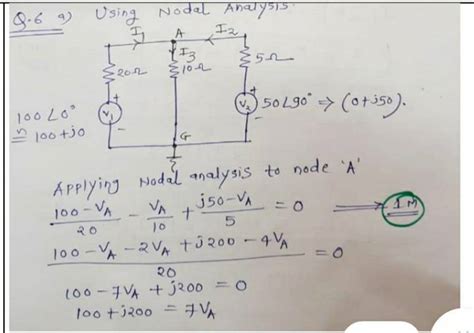 Q.6 a) Using Nodal Analysis.
I1 A I2
I3
20Ω 10Ω 5Ω
+ +
100∠0° V1 V2 50∠90° ⇒ (0+j50).
100+j0 - -
G
Applying Nodal analysis to node 'A'
(100-VA)/20 - VA/10 + (j50-VA)/5 = 0 → 1M
(100-VA-2VA+j200-4VA)/20 = 0
100-7VA+j200 = 0
100+j200 = 7VA